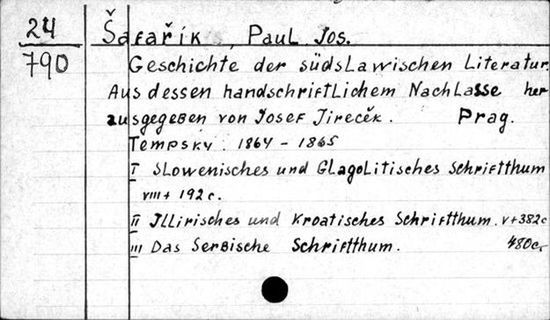 24
790
Šafařík, Paul Jos.
Geschichte der südslawischen Literatur.
Aus dessen handschriftlichem Nachlasse her
ausgegeben von Josef Jireček. Prag.
Tempsky. 1864 - 1865
I Slowenisches und Glagolitisches Schriftthum
VIII + 192 c.
II Illirisches und Kroatisches Schriftthum. V + 382 c
III Das Serbische Schriftthum. 480 c.